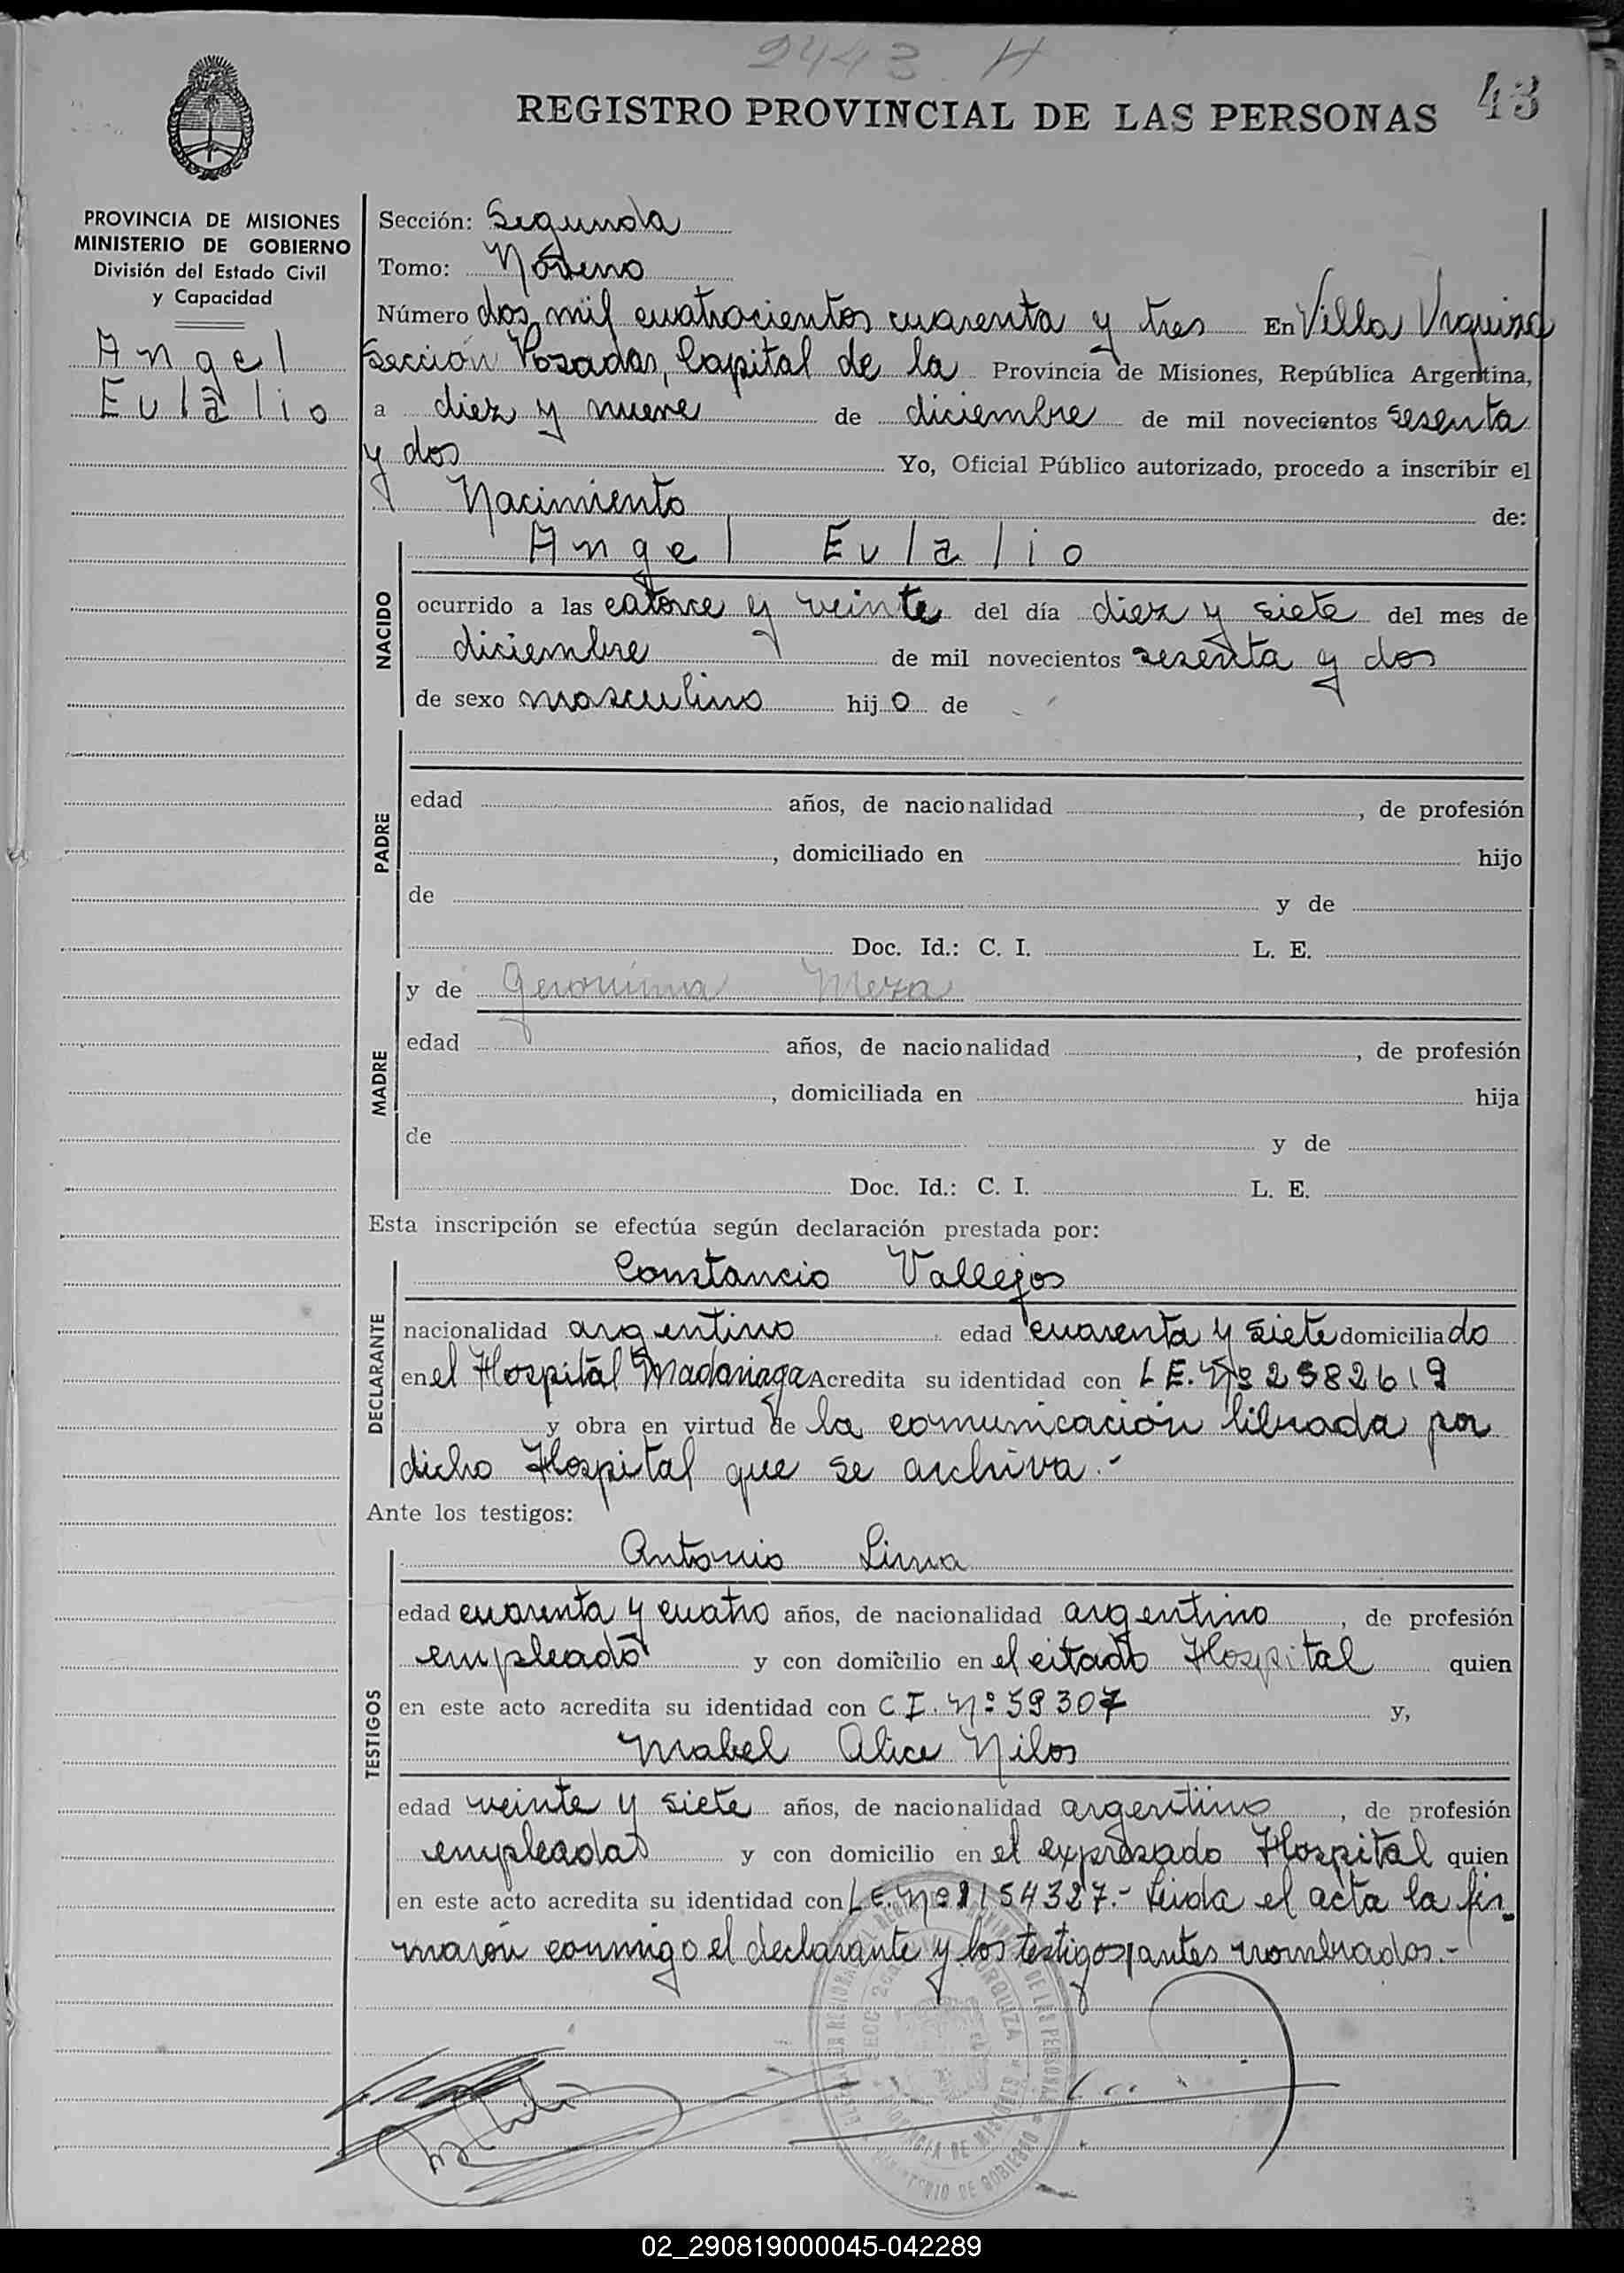 2443 H
43
REGISTRO PROVINCIAL DE LAS PERSONAS
PROVINCIA DE MISIONES
MINISTERIO DE GOBIERNO
División del Estado Civil
y Capacidad
Angel
Eulalio
Sección: Segunda
Tomo: Noveno
Número dos mil cuatrocientos cuarenta y tres En Villa Urquiza
Sección Posadas, Capital de la Provincia de Misiones, República Argentina,
a diez y nueve de diciembre de mil novecientos sesenta
y dos Yo, Oficial Público autorizado, procedo a inscribir el
Nacimiento de:
NACIDO
Angel Eulalio
ocurrido a las catorce y veinte del día diez y siete del mes de
diciembre de mil novecientos sesenta y dos
de sexo masculino hijo de
PADRE
edad años, de nacionalidad , de profesión
, domiciliado en hijo
de y de
Doc. Id.: C. I. L. E.
MADRE
y de Geronima Meza
edad años, de nacionalidad , de profesión
, domiciliada en hija
de y de
Doc. Id.: C. I. L. E.
Esta inscripción se efectúa según declaración prestada por:
DECLARANTE
Constancio Vallejos
nacionalidad argentino edad cuarenta y siete domiciliado
en el Hospital Madariaga Acredita su identidad con L E. Nº 2582619
y obra en virtud de la comunicación librada por
dicho Hospital que se archiva.-
Ante los testigos:
TESTIGOS
Antonio Lima
edad cuarenta y cuatro años, de nacionalidad argentino , de profesión
empleado y con domicilio en el citado Hospital quien
en este acto acredita su identidad con C I. Nº 59307 y,
Mabel Alice Nilos
edad veinte y siete años, de nacionalidad argentino , de profesión
empleada y con domicilio en el expresado Hospital quien
en este acto acredita su identidad con L E. Nº 2154327.- Leida el acta la fir-
maron conmigo el declarante y los testigos antes nombrados.-
02_290819000045-042289